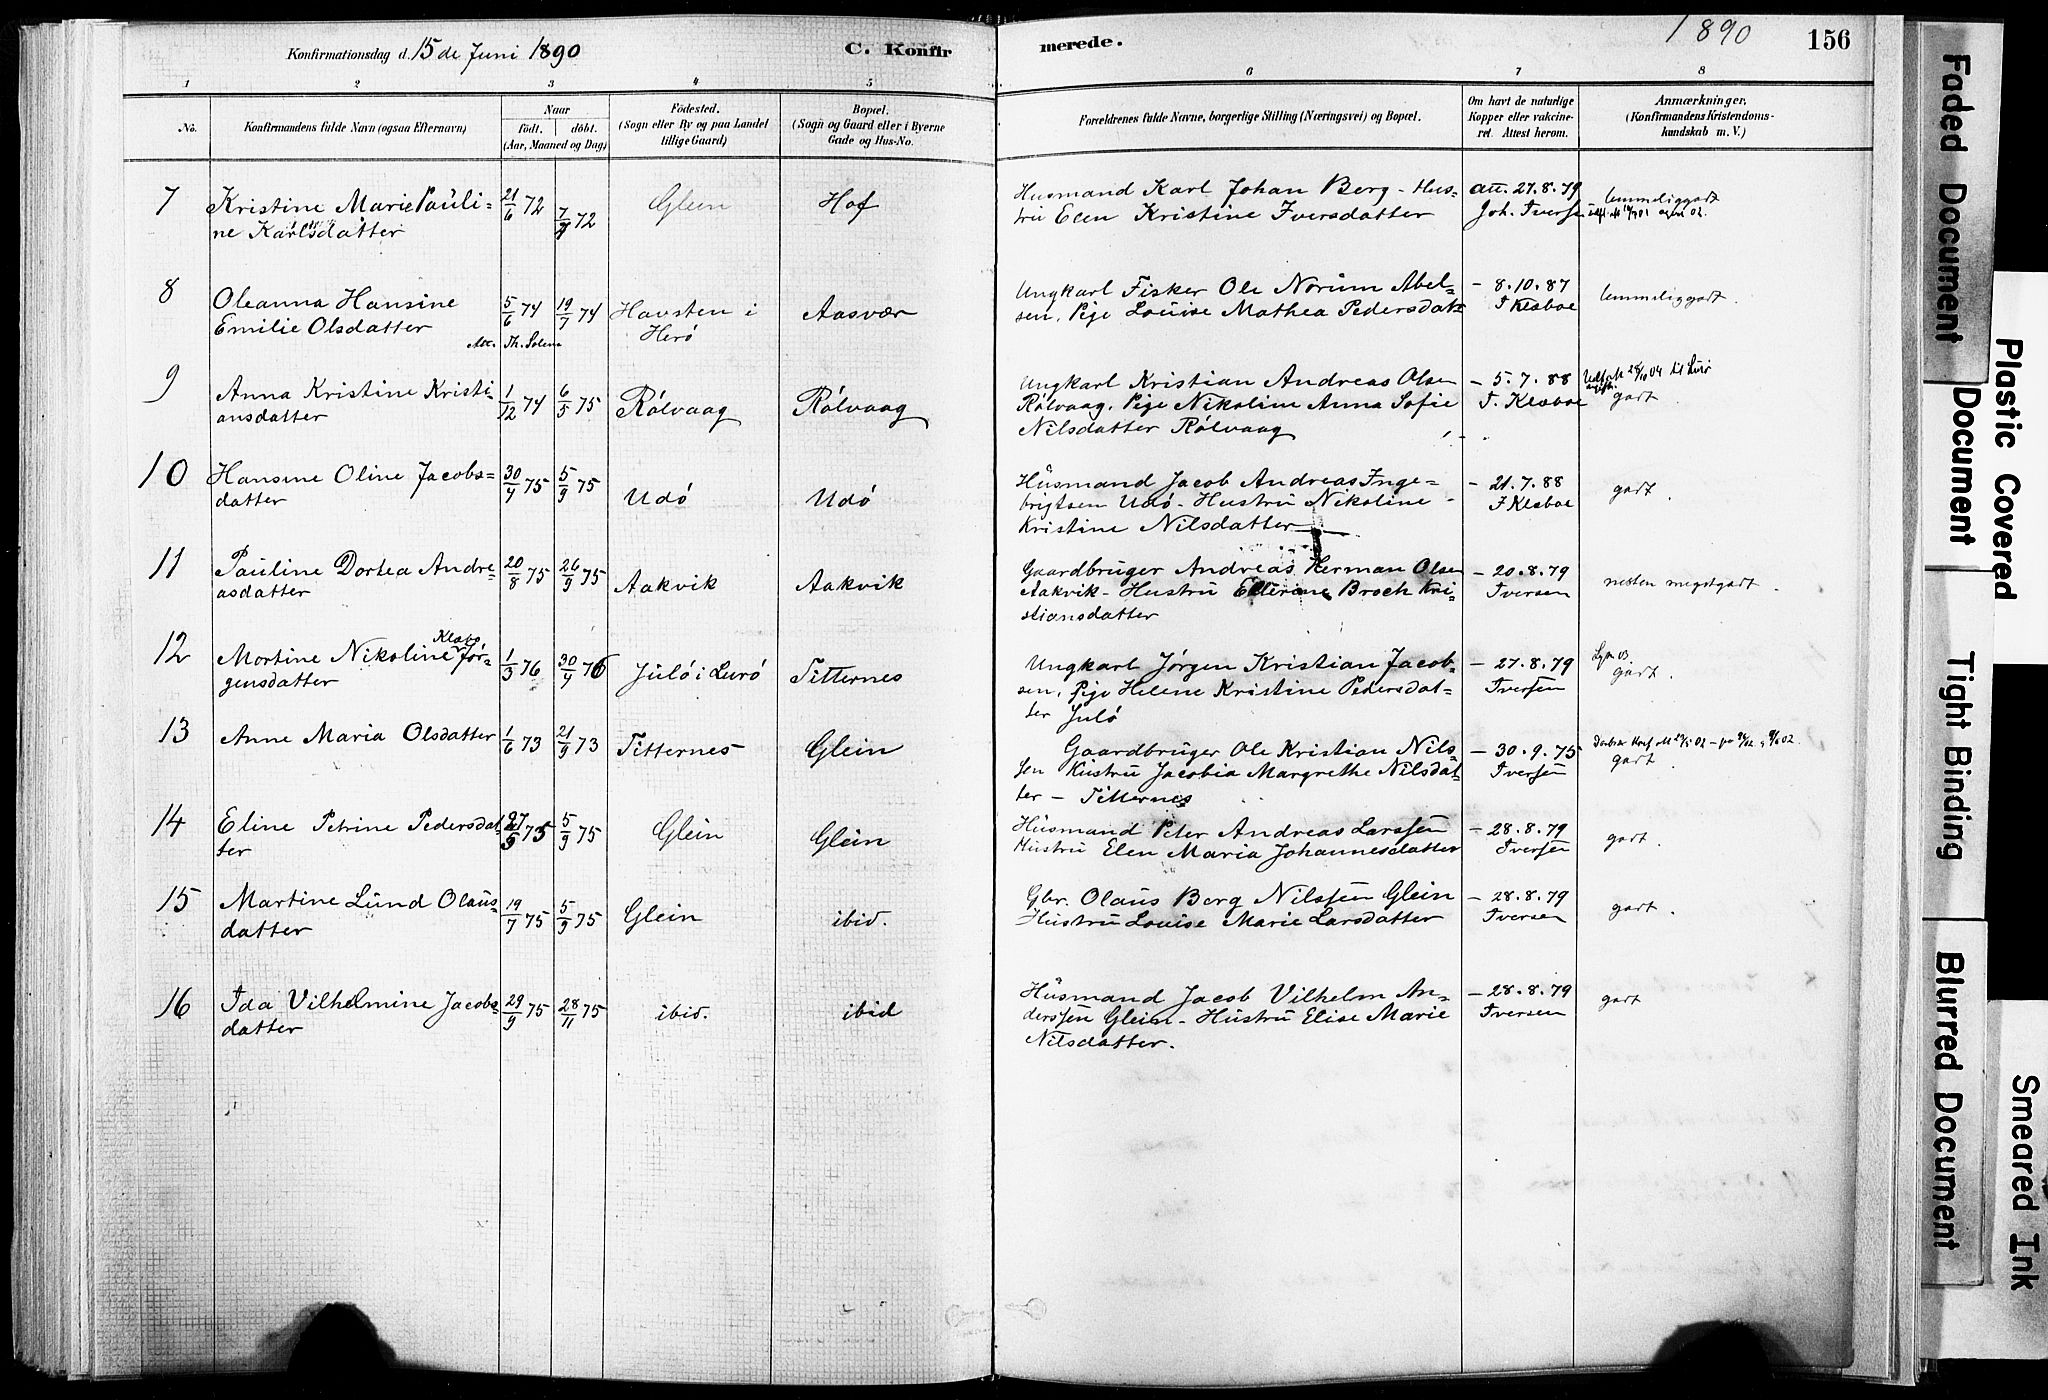 Konfirmationsdag d. 15 de Juni 1890
C. Konfir
merede.
1890
156
1 2 3 4 5 6 7 8
No.
Konfirmandens fulde Navn (ogsaa Efternavn)
Naar
födt. döbt.
(Aar, Maaned og Dag)
Födested.
(Sogn eller By og paa Landet
tillige Gaard)
Bopæl.
(Sogn og Gaard eller i Byerne
Gade og Hus-No.
Forældrenes fulde Navne, borgerlige Stilling (Næringsvei) og Bopæl.
Om havt de naturlige
Kopper eller vakcine-
ret. Attest herom.
Anmærkninger.
(Konfirmandens Kristendoms-
kundskab m. V.)
7 Kristine Marie Pauli- 21/6 72 7/9 72 Glein Hof Husmand Karl Johan Berg - Hus- att. 27.8.79 temmeliggodt
ne Karlsdatter tru Elen Kristine Iversdatter Joh. Iversen
8 Oleanna Hansine 5/6 74 19/7 74 Havsten i Aasvær Ungkarl Fisker Ole Norum Abel- - 8.10.87 temmeliggodt.
Emilie Olsdatter Herö sen. Pige Louise Mathea Pedersdat- F Klæboe
Att. Th. Solem
9 Anna Kristine Kristi- 1/12 74 6/5 75 Rölvaag Rölvaag Ungkarl Kristian Andreas Olsen - 5.7.88 Udfl. 28/10 04 til Lurö
ansdatter Rölvaag. Pige Nikoline Anna Sofie F. Klæboe godt.
Nilsdatter Rölvaag
10 Hansine Oline Jacobs= 30/4 75 5/9 75 Udö Udö Husmand Jacob Andreas Inge- - 21.7.88 godt.
datter brigtsen Udö - Hustru Nikoline F Klæboe
Kristine Nilsdatter
11 Pauline Dortea Andre= 20/8 75 26/9 75 Aakvik Aakvik Gaardbruger Andreas Herman Olsen - 20.8.79 nesten megetgodt.
asdatter Aakvik - Hustru Ellerine Broch Kri- Iversen
stiansdatter
12 Mortine Nikoline Klæbo Jör- 1/3 76 30/4 76 Julö i Lurö Titternes Ungkarl Jörgen Kristian Jacob- - 27.8.79 godt.
gensdatter sen. Pige Helene Kristine Pedersdat- Iversen
ter Julö
13 Anne Maria Olsdatter 1/6 73 21/9 73 Titternes Glein Gaardbruger Ole Kristian Nils- - 30.9.75 godt
sen Hustru Jacobia Margrethe Nilsdat- Iversen
ter - Titternes
14 Eline Petrine Pedersdat- 27/5 75 5/9 75 Glein Glein Husmand Peter Andreas Larssen - 28.8.79 godt.
ter Hustru Elen Maria Johannesdatter Iversen
15 Martine Lund Olaus- 19/7 75 5/9 75 Glein ibid. Gbr. Olaus Berg Nilssen Glein - 28.8.79 godt.
datter Hustru Louise Marie Larsdatter Iversen
16 Ida Vilhelmine Jacobs= 29/9 75 28/11 75 ibid. ibid Husmand Jacob Vilhelm An- - 28.8.79 godt
datter derssen Glein - Hustru Elise Marie Iversen
Nilsdatter.
Faded Document
Plastic Covered
Document
Tight Binding
Blurred Document
Smeared Ink